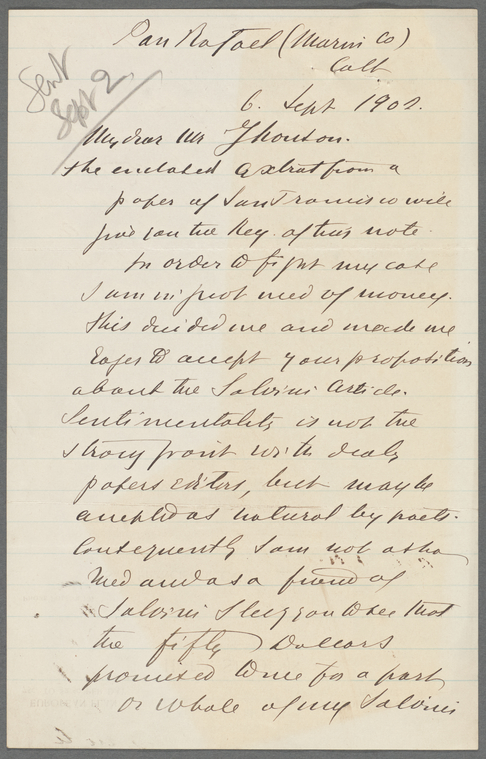 San Rafael (Marin Co)
Calf.
Sent
Sept 2
6. Sept 1902.
My dear Mr Johnson.
the enclosed extract from a
paper of San Francisco will
give you the key of this note.
In order to fight my case
I am in great need of money.
this decided me and made me
eager to accept your proposition
about the Salvini Article.
Sentimentality is not the
strong point with daily
papers editors, but may be
accepted as natural by poets.
Consequently I am not asha
med and as a friend of
Salvini I beg you to see that
the fifty Dollars
promised to me for a part
or whole of my Salvini